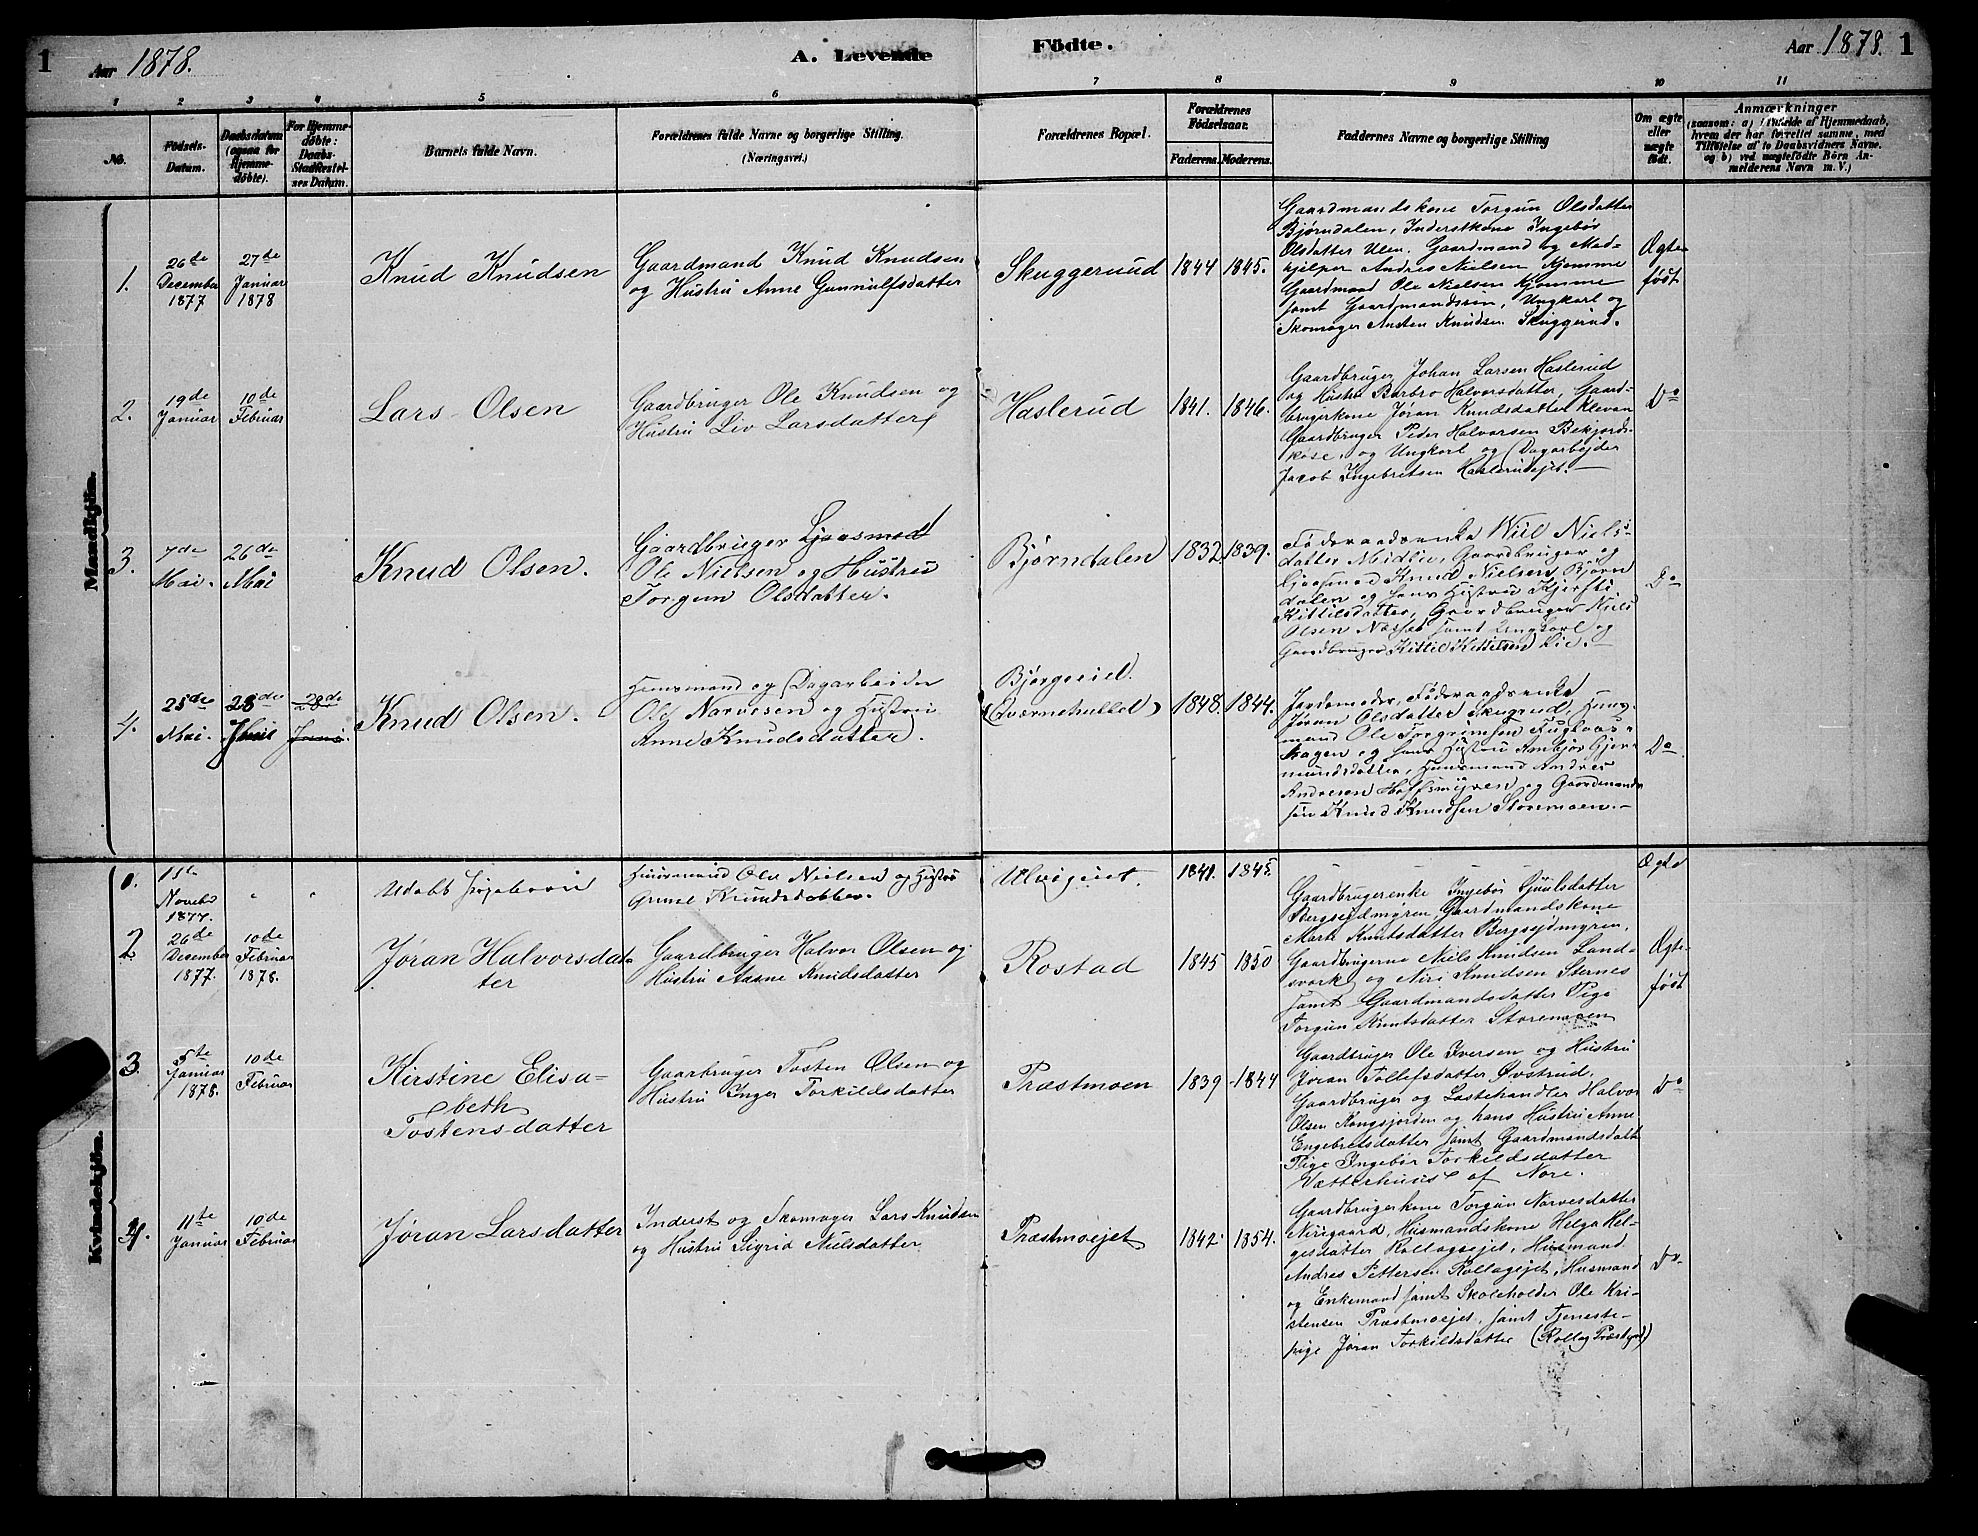 1 Aar 1878. A. Levende Födte. Aar 1878. 1
1 2 3 4 5 6 7 8 9 10 11
No.
Födsels-
Datum.
Daabsdatum
(ogsaa for
Hjemme-
döbte).
For Hjemme-
döbte:
Daabs-
Stadfæstel-
ses Datum.
Barnets fulde Navn.
Forældrenes fulde Navne og borgerlige Stilling.
(Næringsvei.)
Forældrenes Bopæl.
Forældrenes
Födselsaar.
Faderens. Moderens.
Faddernes Navne og borgerlige Stilling
Om ægte
eller
uægte
födt.
Anmærkninger
(saasom: a) i Tilfælde af Hjemmedaab,
hvem der har forrettet samme, med
Tilföielse af to Daabsvidners Navne.
og b) ved uægtefödte Börn An-
melderens Navn m. V.)
Mandkjön.
1.
26de
December
1877
27de
Januar
1878
Knud Knudsen
Gaardmand Knud Knudsen
og Hustru Anne Gunnulfsdatter
Skuggeruud
1844 1845.
Gaardmandskone Torgun Olsdatter
Bjørndalen, Inderstkone Ingebór
Olsdatter Ulen. Gaardmand og Med-
hjelper Andres Nielsen Kjemme
Gaardmand Ole Nielsen Kjomme
samt Gaardmandssøn, Ungkarl og
Skomager Austen Knudsen Skuggerud.
Ægte-
født
2.
19de
Januar
10de
Februar
Lars Olsen
Gaardbruger Ole Knudsen og
Hustru Liv Larsdatter
Haslerud
1841. 1846.
Gaardbruger Johan Larsen Haslerud
og Hustru Barbro Halvorsdatter, Gaard-
brugerkone Jøran Knudsdatter Klevan
Gaardbruger Peder Halvorsen Bekjords-
kose, og Ungkarl og Dagarbejder
Jacob Ingebretsen Haslerudejet.
Do
3.
7de
Mai.
26de
Mai
Knud Olsen.
Gaardbruger Ljaasmed
Ole Nielsen og Hustru
Torgun Olsdatter.
Bjørndalen
1832 1839.
Føderaadsenke Niels-
datter Midlie, Gaardbruger og
Ljaasmed Knud Nielsen Bjørn
dalen og hans Hustru Kjersti
Kittilsdatter, Gaardbruger Niels
Olsen samt Ungkarl og
Gaardbruger Kittil Kittelsen Lie.
Do
4.
25de
Mai.
28de
28de
Juni.
Knud Olsen.
Huusmand og Dagarbeider
Ole Narvesen og Hustru
Anne Knudsdatter.
Bjørgeeiel.
(Qværnehullet)
1848. 1844.
Jordemoder, Føderaadsenke
Jøran Olsdatter Skugrud, Huus-
mand Ole Torgrimsen Fugleaas-
hagen og hans Hustru Ambjør Gjer-
mundsdatter, Huusmand Andres
Andresen Hoffsmyren og Gaardmands
søn Knud Knudsen Storemoen.
Do
Kvindekjön.
1.
Novebr
1877.
" "
Udøbt Pigebarn
Huusmand Ole Nielsen og Hustru
Knudsdatter.
Ulvigeiet.
1841. 1845.
Ægte
2
26de
December
1877.
10de
Februar
1878.
Jøran Halvorsdat-
ter
Gaardbruger Halvor Olsen og
Hustru Aasne Knudsdatter
Rostad
1845 1850
Gaardbrugerenke Ingebór Sjuulsdatter
Bergsejdmyren, Gaardmandskone
Marte Knutsdatter Bergsejdmyren,
Gaardbrugerne Niels Knudsen Land-
svark og Niri Knudsen Sternes
samt Gaardmandsdatter Pige
Torgun Knutsdatter Storemoen
Ægte-
født
3.
5te
Januar
1878.
10de
Februar
Kirstine Elisa-
beth
Tostensdatter
Gaarbruger Tosten Olsen og
Hustru Inger Torkildsdatter
Præstmoen
1839 1844
Gaardbruger Ole Iversen og Hustru
Jøran Tollefsdatter Øvstrud.
Gaardbruger og Lastehandler Halvor
Olsen Kongsjorden og hans Hustru Anne
Engebretsdatter samt Gaardmandsdatt
Pige Ingebór Torkildsdatter
Vætterhuus af Nore.
Do
4.
11te
Januar
10de
Februar
Jøran Larsdatter
Inderst og Skomager Lars Knudsen
og Hustru Sigrid Nielsdatter
Præstmoejet
1842. 1854.
Gaardbrugerkone Torgun Narvesdatter
Nirigaard, Husmandskone Helga Hel-
gesdatter Rollagsejet, Husmand
Andres Pettersen Rollagejet, Husmand
og Enkemand samt Skoleholder Ole Kri-
stensen Præstmoejet, samt Tjeneste-
pige Jøran Torkildsdatter (Rollag Præstgrd)
Do